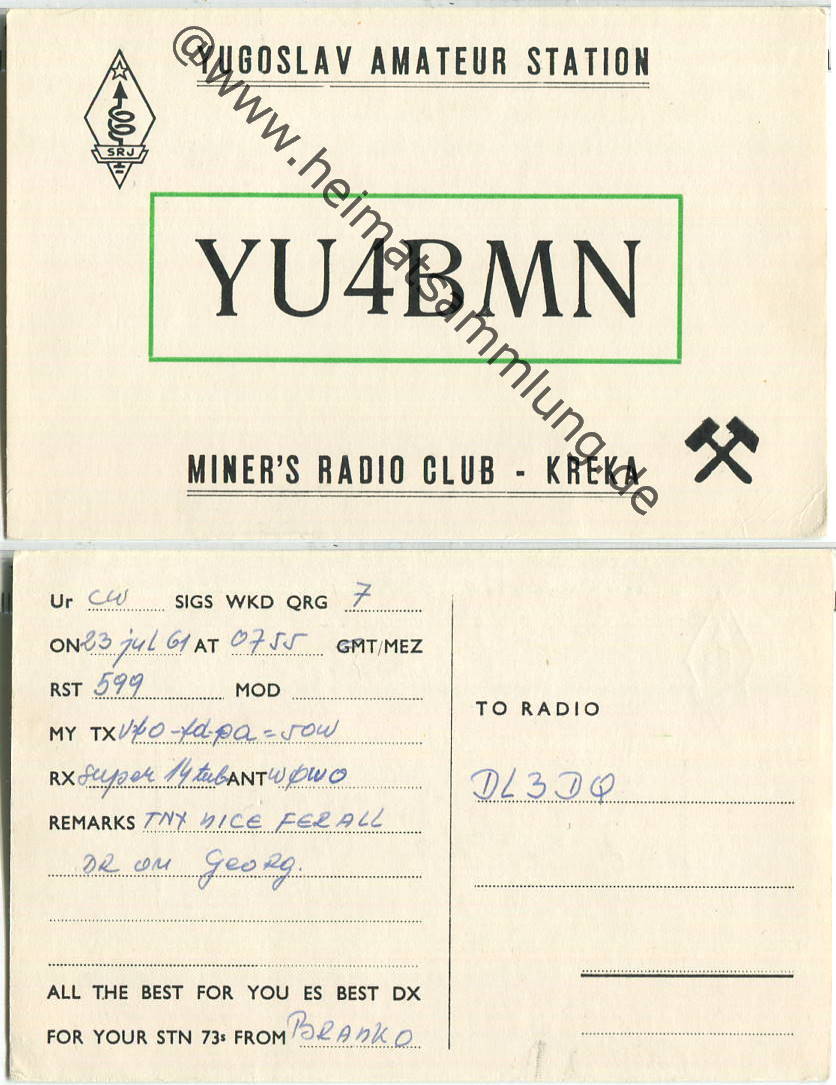 YUGOSLAV AMATEUR STATION
SRJ
YU4BMN
MINER'S RADIO CLUB - KREKA
@www.heimatsammlung.de
Ur CW SIGS WKD QRG 7
ON 23 jul 61 AT 0755 GMT/MEZ
RST 599 MOD
MY TX vfo-fd-pa=50W
RX super 14 tub ANT WØWO
REMARKS TNX NICE FER ALL
DR OM Georg.
ALL THE BEST FOR YOU ES BEST DX
FOR YOUR STN 73s FROM BRANKO
TO RADIO
DL3DQ